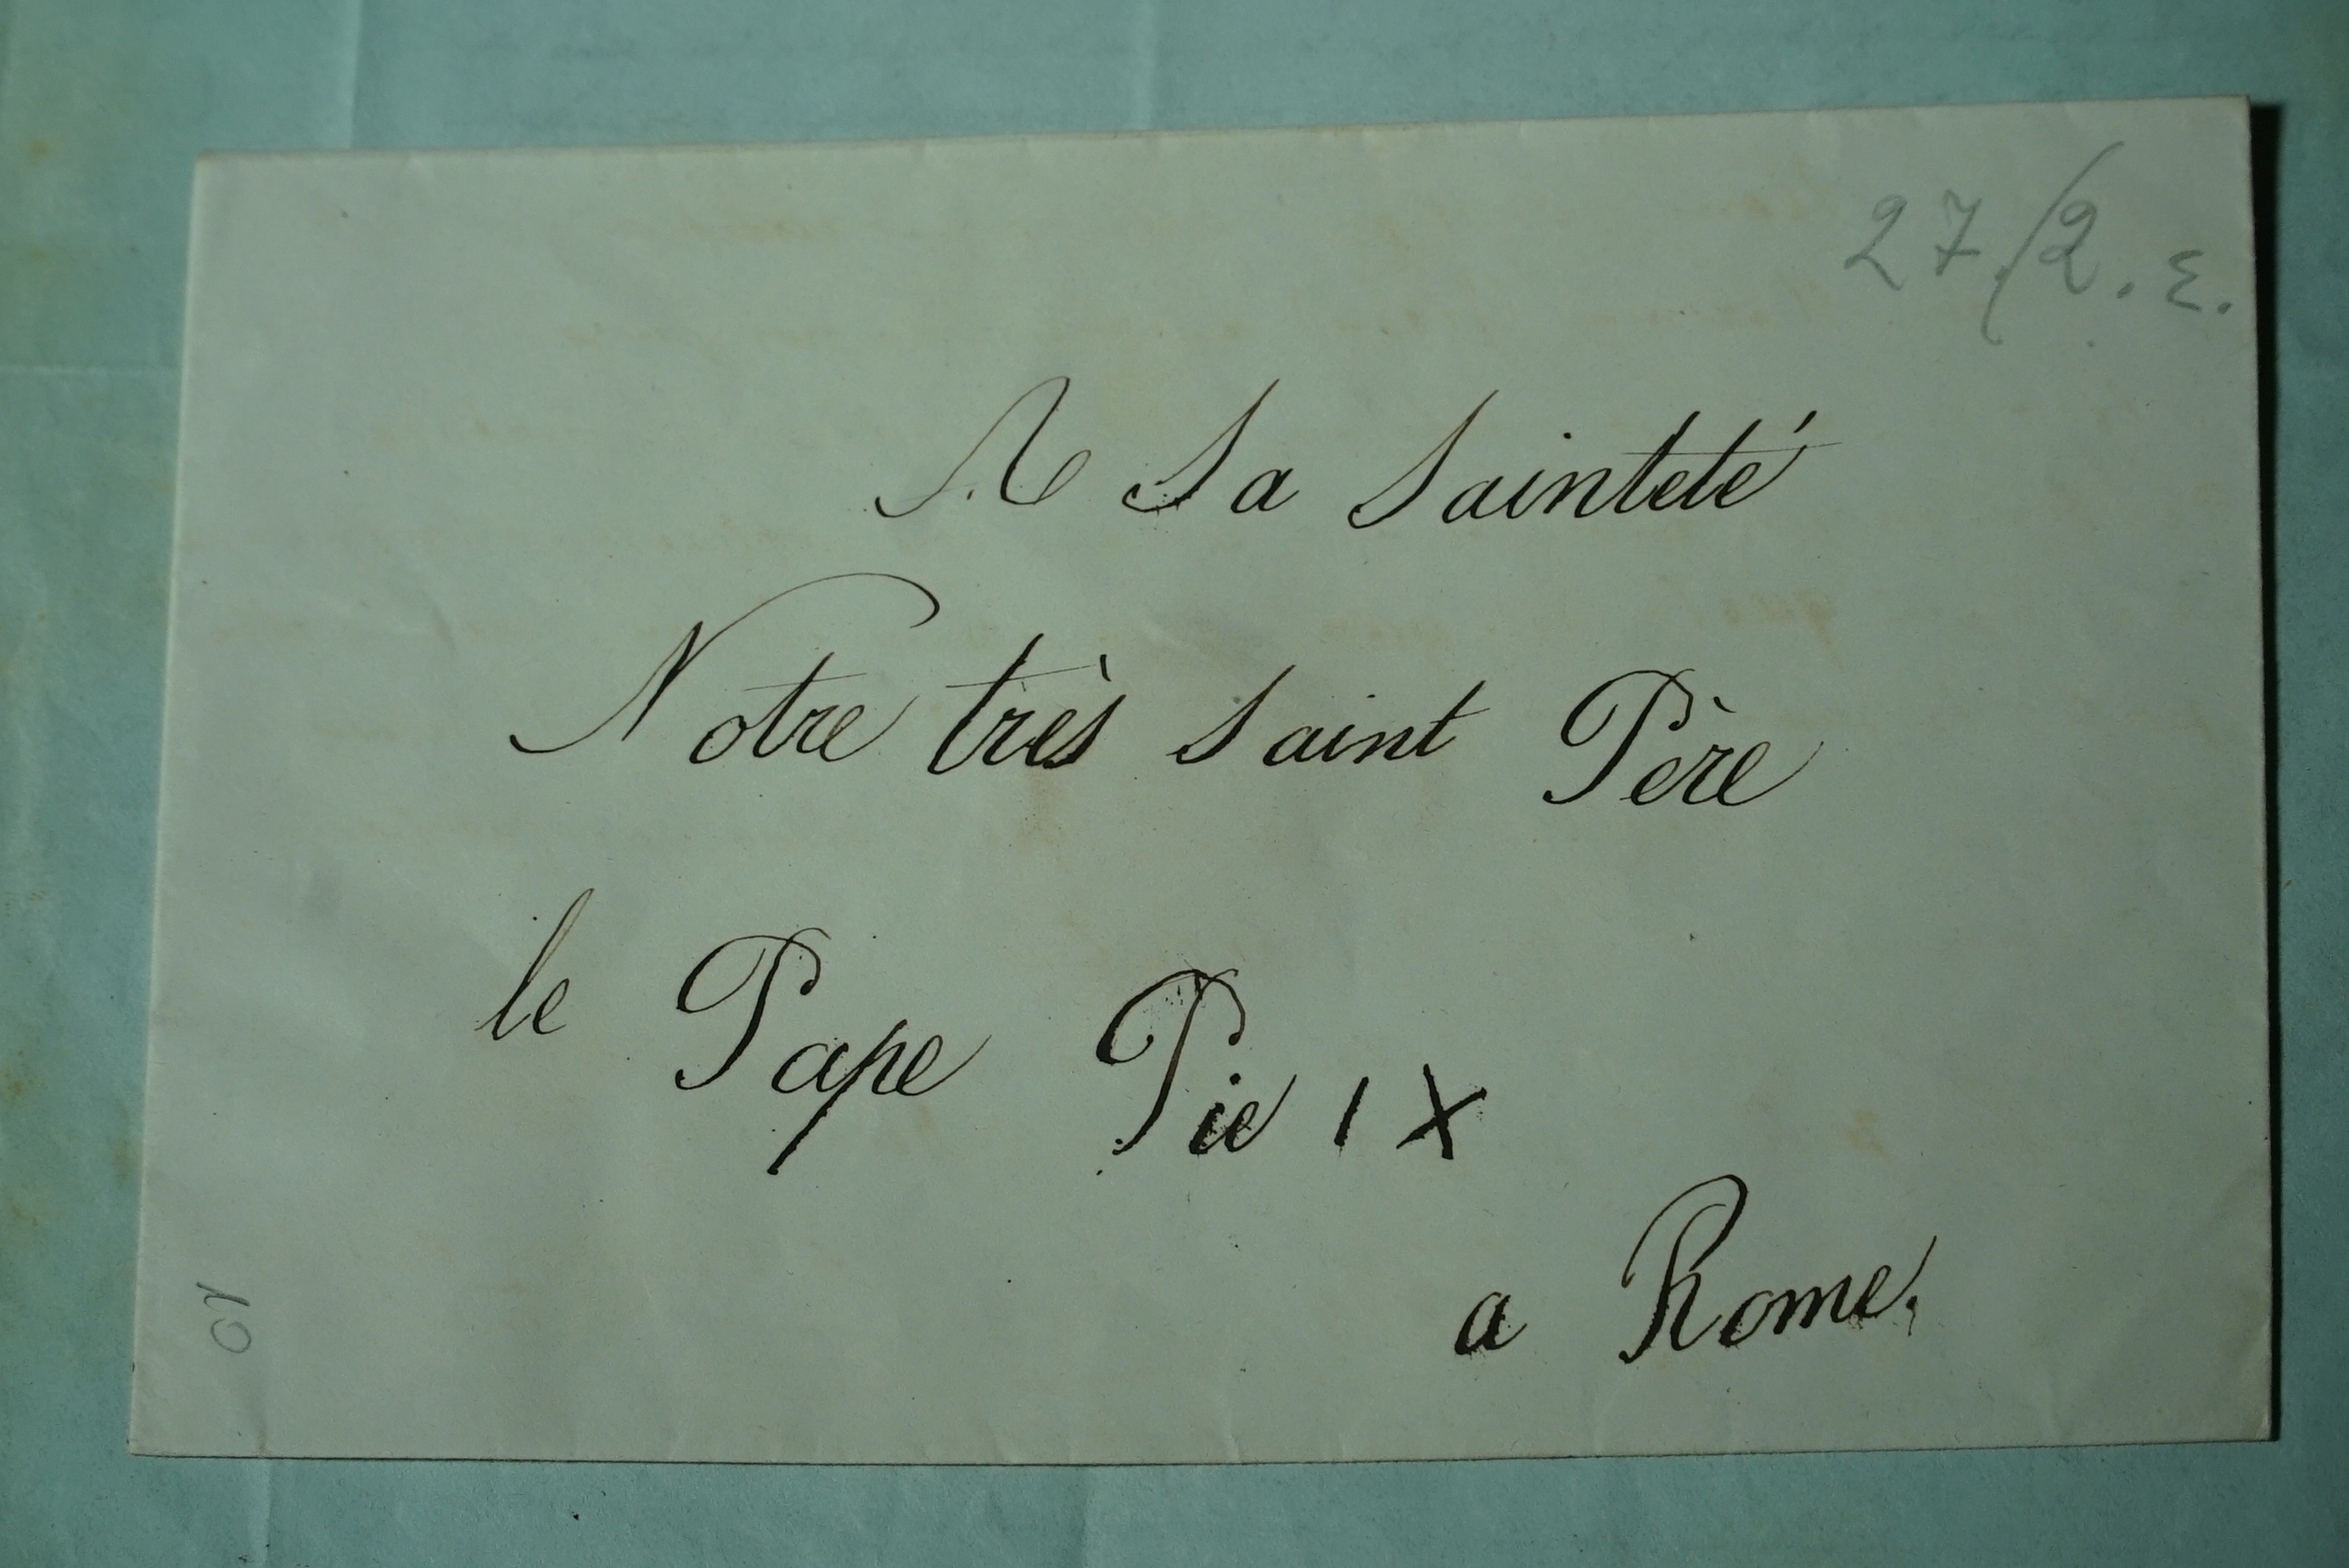 27/2. ε.
A Sa Sainteté
Notre très saint Père
le Pape Pie IX
a Rome.
10